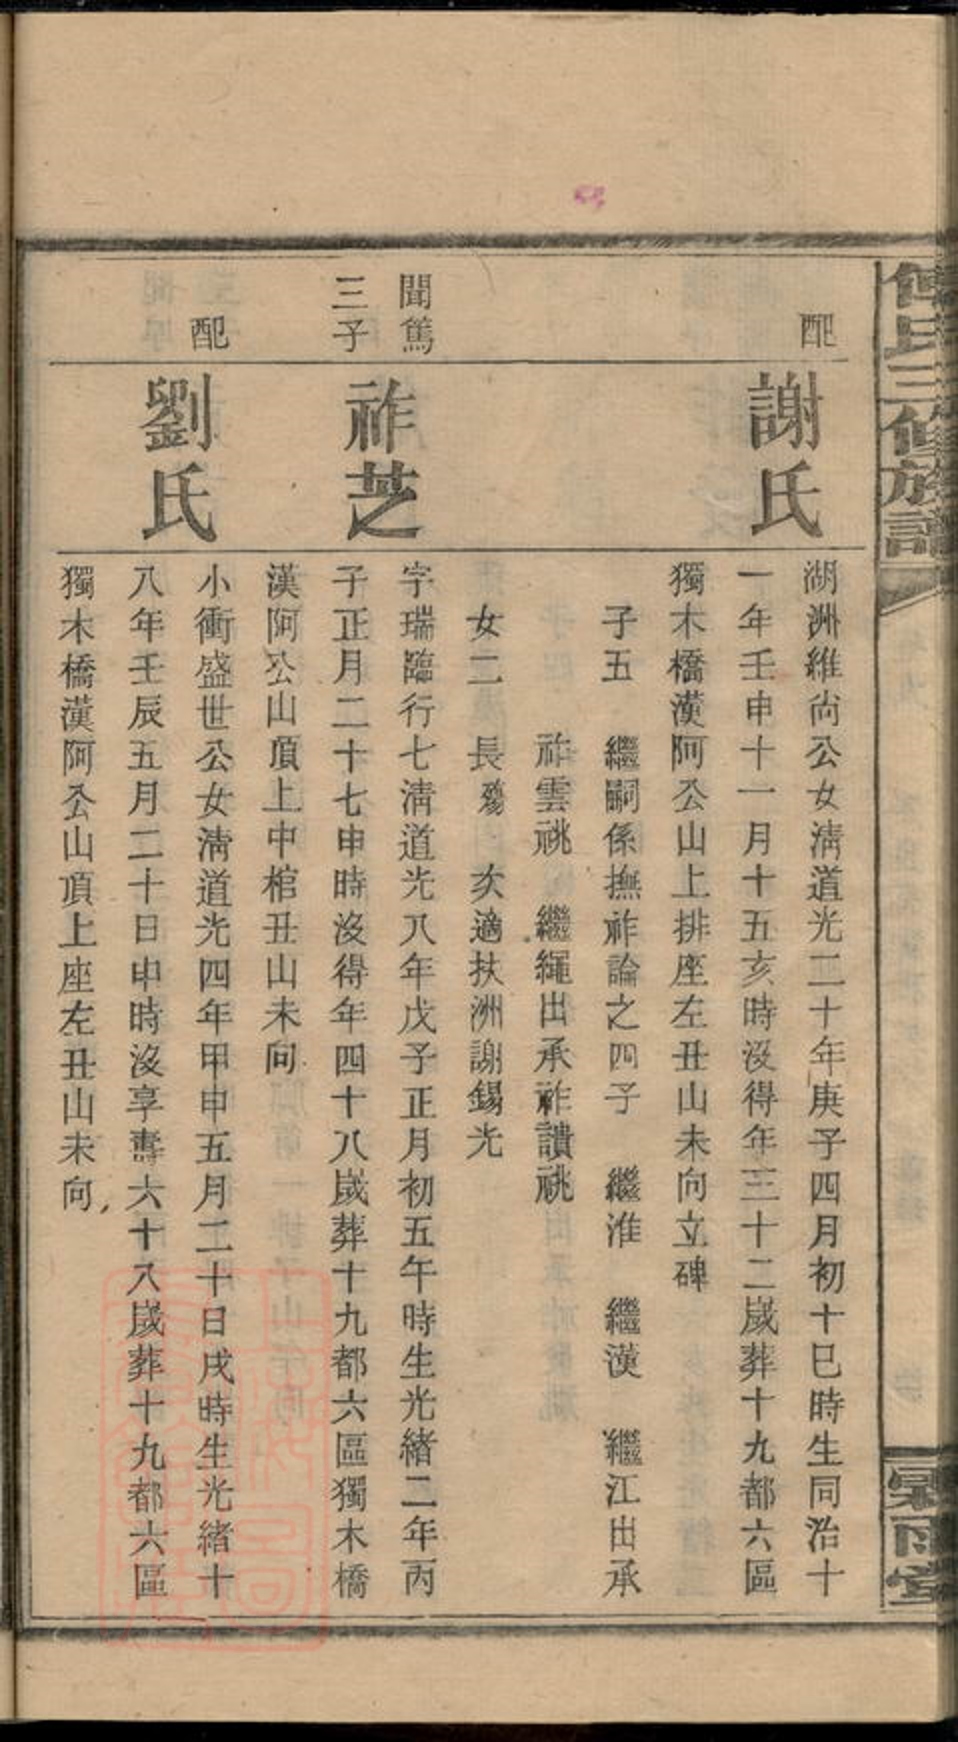 氏三修族譜
雨堂
配
謝氏
湖洲維尙公女淸道光二十年庚子四月初十巳時生同治十
一年壬申十一月十五亥時沒得年三十二嵗葬十九都六區
獨木橋漢阿公山上排座左丑山未向立碑
子五 繼嗣係撫祚論之四子 繼淮 繼漢 繼江出承
祚雲祧 繼繩出承祚讃祧
女二 長殤 次適扶洲謝錫光
聞篤
三子
祚芝
字瑞臨行七淸道光八年戊子正月初五午時生光緒二年丙
子正月二十七申時沒得年四十八嵗葬十九都六區獨木橋
漢阿公山頂上中棺丑山未向
配
劉氏
小衝盛世公女淸道光四年甲申五月二十日戌時生光緒十
八年壬辰五月二十日申時沒享壽六十八嵗葬十九都六區
獨木橋漢阿公山頂上座左丑山未向